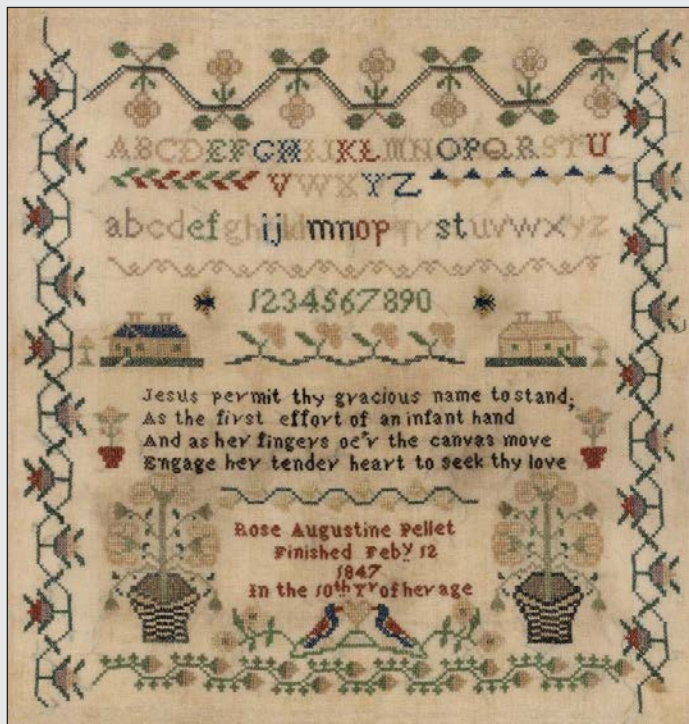 ABCDEFGHIJKLMNOPQRSTU
VWXYZ
abcdefghijklmnopqrstuvwxyz
1234567890
Jesus permit thy gracious name to stand;
As the first effort of an infant hand
And as her fingers oe'r the canvas move
Engage her tender heart to seek thy love
Rose Augustine Pellet
Finished Feby 12
1847
In the 10th Yr of her age